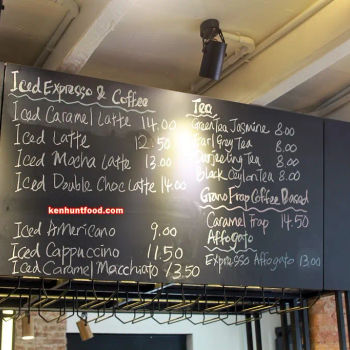 Iced Expresso & Coffee
Iced Caramel Latte 14.00
Iced Latte 12.50
Iced Mocha Latte 13.00
Iced Double Choc Latte 14.00
kenhuntfood.com
Iced Americano 9.00
Iced Cappuccino 11.50
Iced Caramel Macchiato 13.50
Tea
Green Tea Jasmine 8.00
Earl Grey Tea 8.00
Darjeeling Tea 8.00
Black Ceylon Tea 8.00
Grano Frap Coffee Based
Caramel frap 14.50
Affogato
Expresso Affogato 13.00